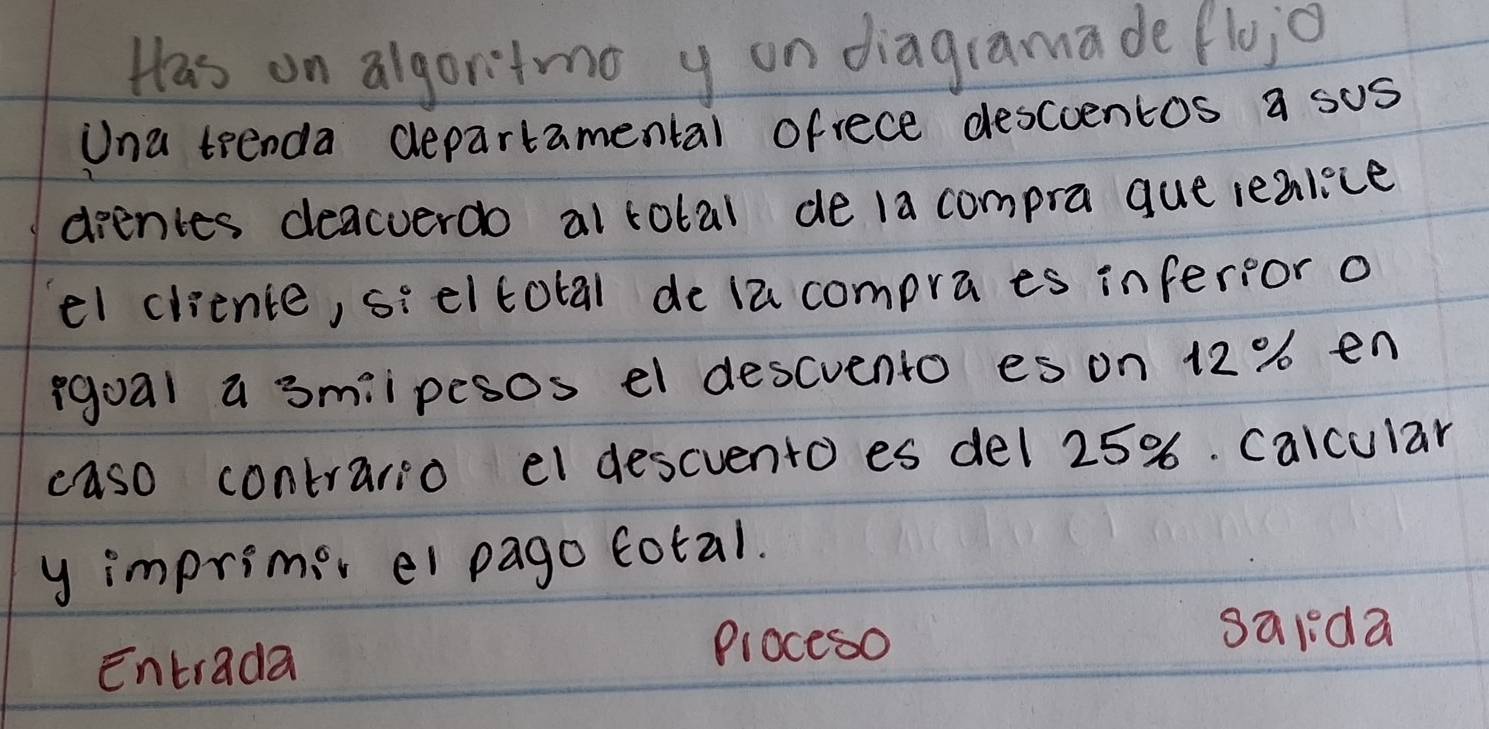 Has un algoritmo y un diagrama de flujo
Una tienda departamental ofrece descuentos a sus
clientes deacuerdo al total de la compra que realice
el cliente, si el total de la compra es inferior o
igual a 3mil pesos el descuento es un 12% en
caso contrario el descuento es del 25%. Calcular
y imprimir el pago total.
Entrada Proceso Salida